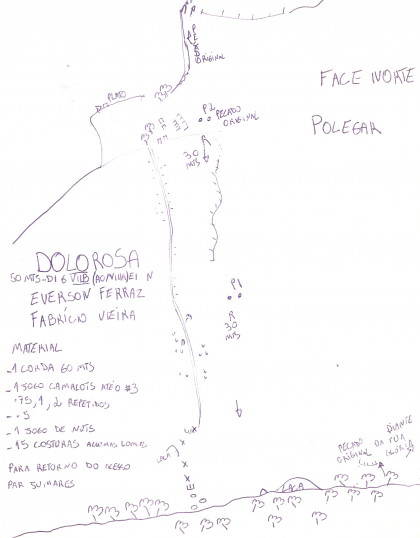 PECADO ORIGINAL
FACE NORTE
POLEGAR
PLATO
P2
PECADO
ORIGINAL
R
30
MTS
DOLOROSA
50 MTS-D1 6 VIIB (A0/VIIA) E1 N
EVERSON FERRAZ
FABRÍCIO VIEIRA
P1
R
30
MTS
MATERIAL
-1 CORDA 60 MTS
-1 JOGO CAMALOTS ATÉ O #3
.75, 1, 2 REPETIDOS
- .5
-1 JOGO DE NUTS
-15 COSTURAS ALGUMAS LONGAS
PARA RETORNO DO
PAR
LACA
LACA
PECADO
ORIGINAL
DIANTE
DA TUA
GLÓRIA